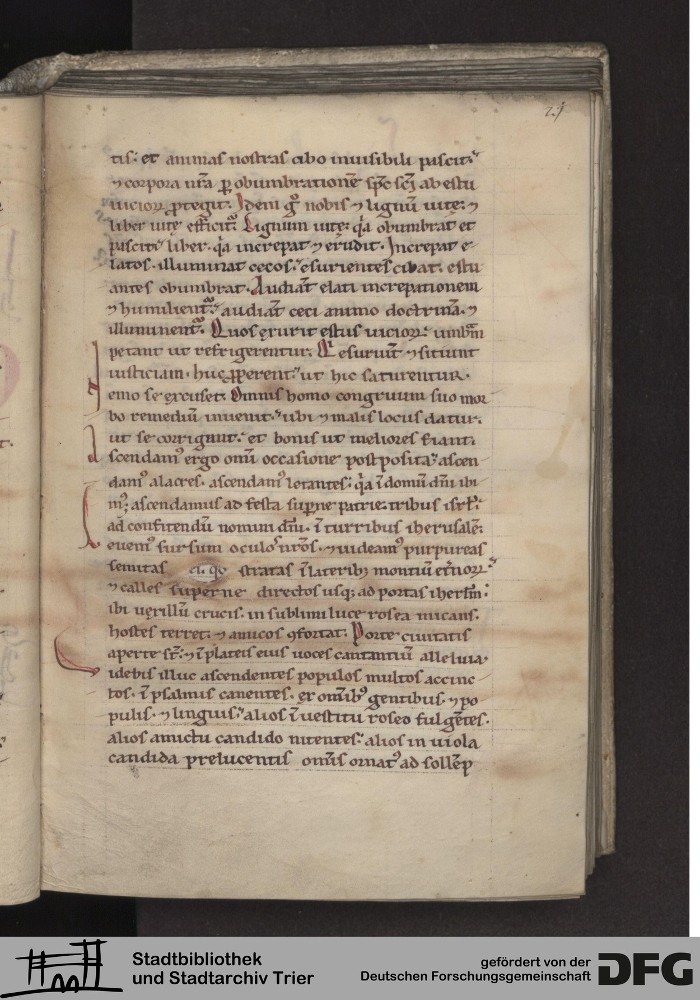 21
tis. et animas nostras cibo inuisibili pascit.
⁊ corpora nr̄a ꝑ obumbrationē spc̄ scī ab estu
uicioꝝ ꝓtegit. Idem gͦ nobis ⁊ lignū uitę. ⁊
liber uitę efficit᷒. Lignum uitę. q̇a obumbrat et
pascit. liber. q̇a increpat ⁊ erudit. Increpat e
latos. illuminat cecos. esurientes cibat. estu
antes obumbrat. Audiāt elati increpationem
⁊ humilient᷒. audiāt ceci animo doctrinā. ⁊
illuminent᷒. Quos exurit estus uicioꝝ. umbrā
petant ut refrigerentur. Qͥ esuriūt ⁊ sitiunt
iusticiam. huc ꝓperent. ut hic saturentur.
Nemo se excuset. Omnis homo congruum suo mor
bo remediū inuenit. ubi ⁊ malis locus datur.
ut se corrigant. et bonis ut meliores fiant.
Ascendam᷒ ergo omī occasione postposita. ascen
dam᷒ alacres. ascendam᷒ letantes. q̇a ī domū dn̄i ibi
m᷒; ascendamus ad festa suꝑne patrie. tribus isrl̄.
ad confitendū nomini dn̄i. ī turribus iherusalē.
Leuem᷒ sursum oculos nr̄os. ⁊ uideam᷒ purpureas
semitas stratas ī laterib; montiū etn̄oꝝ.
⁊ calles superne directos usq; ad portas iherlm̄.
ibi uexillū crucis. in sublimi luce rosea micans.
hostes terret. ⁊ amicos ꝯfortat. Porte ciuitatis
aperte st̄. ⁊ ī plateis eius uoces cantantiū alleluia.
Uidebis illuc ascendentes populos multos accinc
tos. ī psalmis canentes. ex omīb᷒ gentibus. ⁊ po
pulis. ⁊ linguis. alios ī uestitu roseo fulgētes.
alios amictu candido nitentes. alios in uiola
candida prelucentis omīs ornat᷒ ad sollēp
Stadtbibliothek
und Stadtarchiv Trier
gefördert von der
Deutschen Forschungsgemeinschaft
DFG